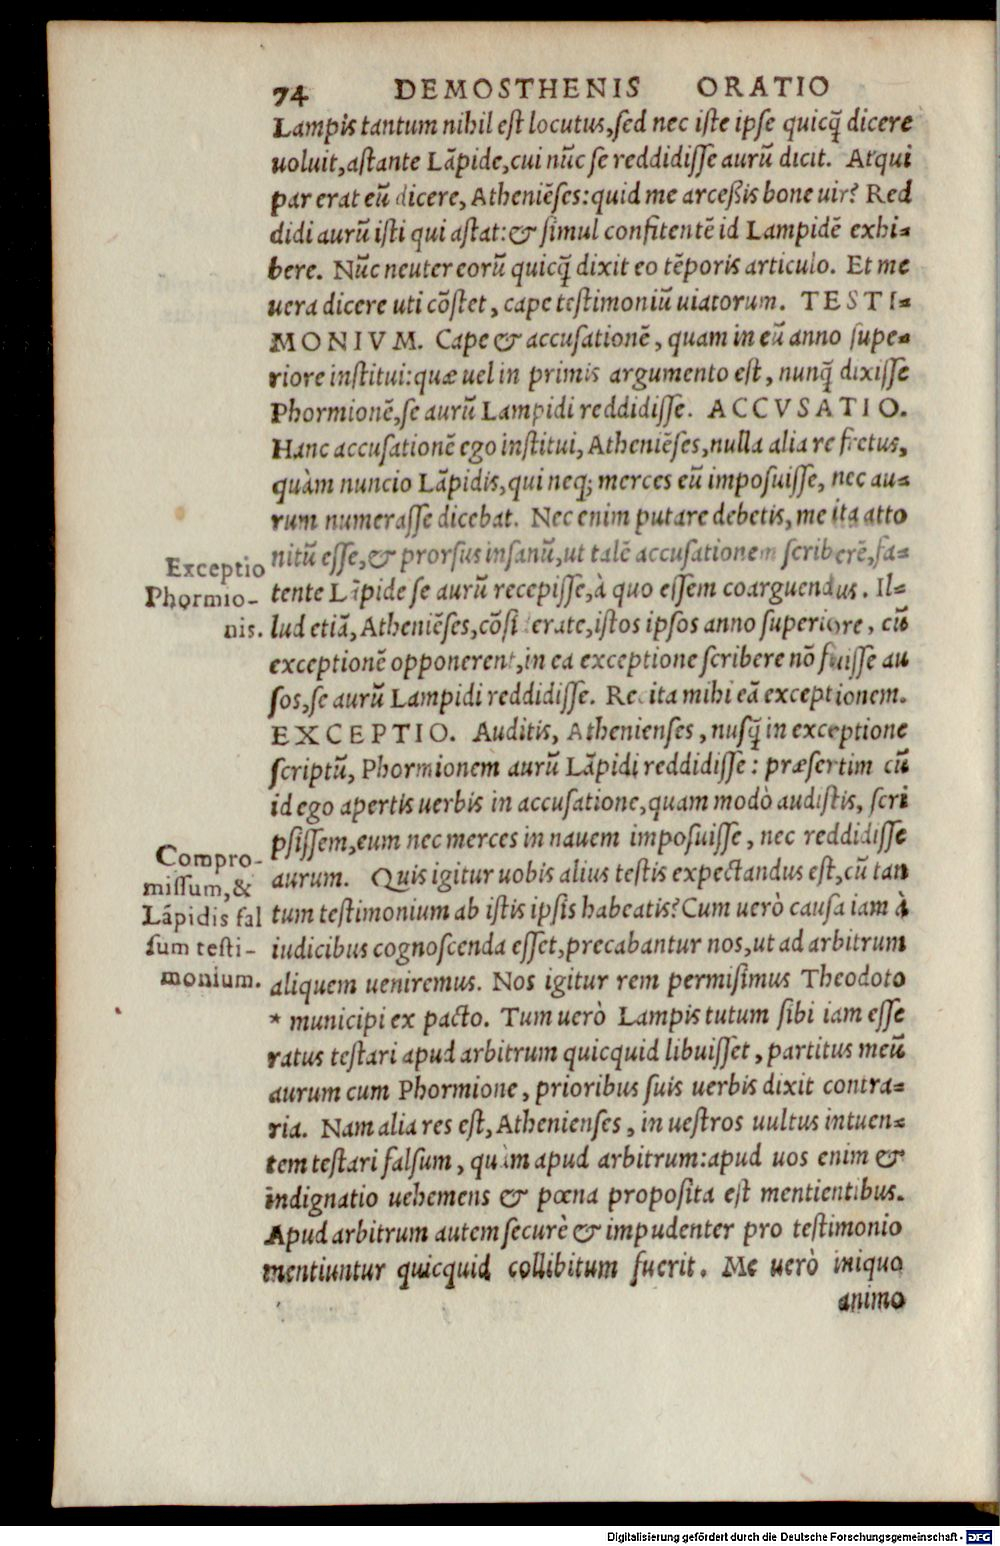 74 DEMOSTHENIS ORATIO
Lampis tantum nihil est locutus, sed nec iste ipse quicq̃ dicere
uoluit, astante Lãpide, cui nũc se reddidisse aurũ dicit. Atqui
par erat eũ dicere, Atheniẽses: quid me arcessis bone uir? Red
didi aurũ isti qui astat: & simul confitentẽ id Lampidẽ exhi-
bere. Nũc neuter eorũ quicq̃ dixit eo tẽporis articulo. Et me
uera dicere uti cõstet, cape testimoniũ uiatorum. TESTI-
MONIVM. Cape & accusationẽ, quam in eũ anno supe-
riore institui: quæ uel in primis argumento est, nunq̃ dixisse
Phormionẽ, se aurũ Lampidi reddidisse. ACCVSATIO.
Hanc accusationẽ ego institui, Atheniẽses, nulla alia re fretus,
quàm nuncio Lãpidis, qui neq; merces eũ imposuisse, nec au-
rum numerasse dicebat. Nec enim putare debetis, me ita atto
nitũ esse, & prorsus insanũ, ut talẽ accusationem scriberẽ, fa-
tente Lãpide se aurũ recepisse, à quo essem coarguendus. Il-
lud etiã, Atheniẽses, cõsiderate, istos ipsos anno superiore, cũ
exceptionẽ opponerent, in ea exceptione scribere nõ fuisse au
sos, se aurũ Lampidi reddidisse. Recita mihi eã exceptionem.
EXCEPTIO. Auditis, Athenienses, nusq̃ in exceptione
scriptũ, Phormionem aurũ Lãpidi reddidisse: præsertim cũ
id ego apertis uerbis in accusatione, quam modò audistis, scri
psissem, eum nec merces in nauem imposuisse, nec reddidisse
aurum. Quis igitur uobis alius testis expectandus est, cũ tan
tum testimonium ab istis ipsis habeatis? Cum uerò causa iam à
iudicibus cognoscenda esset, precabantur nos, ut ad arbitrum
aliquem ueniremus. Nos igitur rem permisimus Theodoto
* municipi ex pacto. Tum uerò Lampis tutum sibi iam esse
ratus testari apud arbitrum quicquid libuisset, partitus meũ
aurum cum Phormione, prioribus suis uerbis dixit contra-
ria. Nam alia res est, Athenienses, in uestros uultus intuen-
tem testari falsum, quàm apud arbitrum: apud uos enim &
indignatio uehemens & pœna proposita est mentientibus.
Apud arbitrum autem securè & impudenter pro testimonio
mentiuntur quicquid collibitum fuerit. Me uerò iniquo
animo
Exceptio
Phormio-
nis.
Compro-
missum, &
Lãpidis fal
sum testi-
monium.
Digitalisierung gefördert durch die Deutsche Forschungsgemeinschaft - DFG